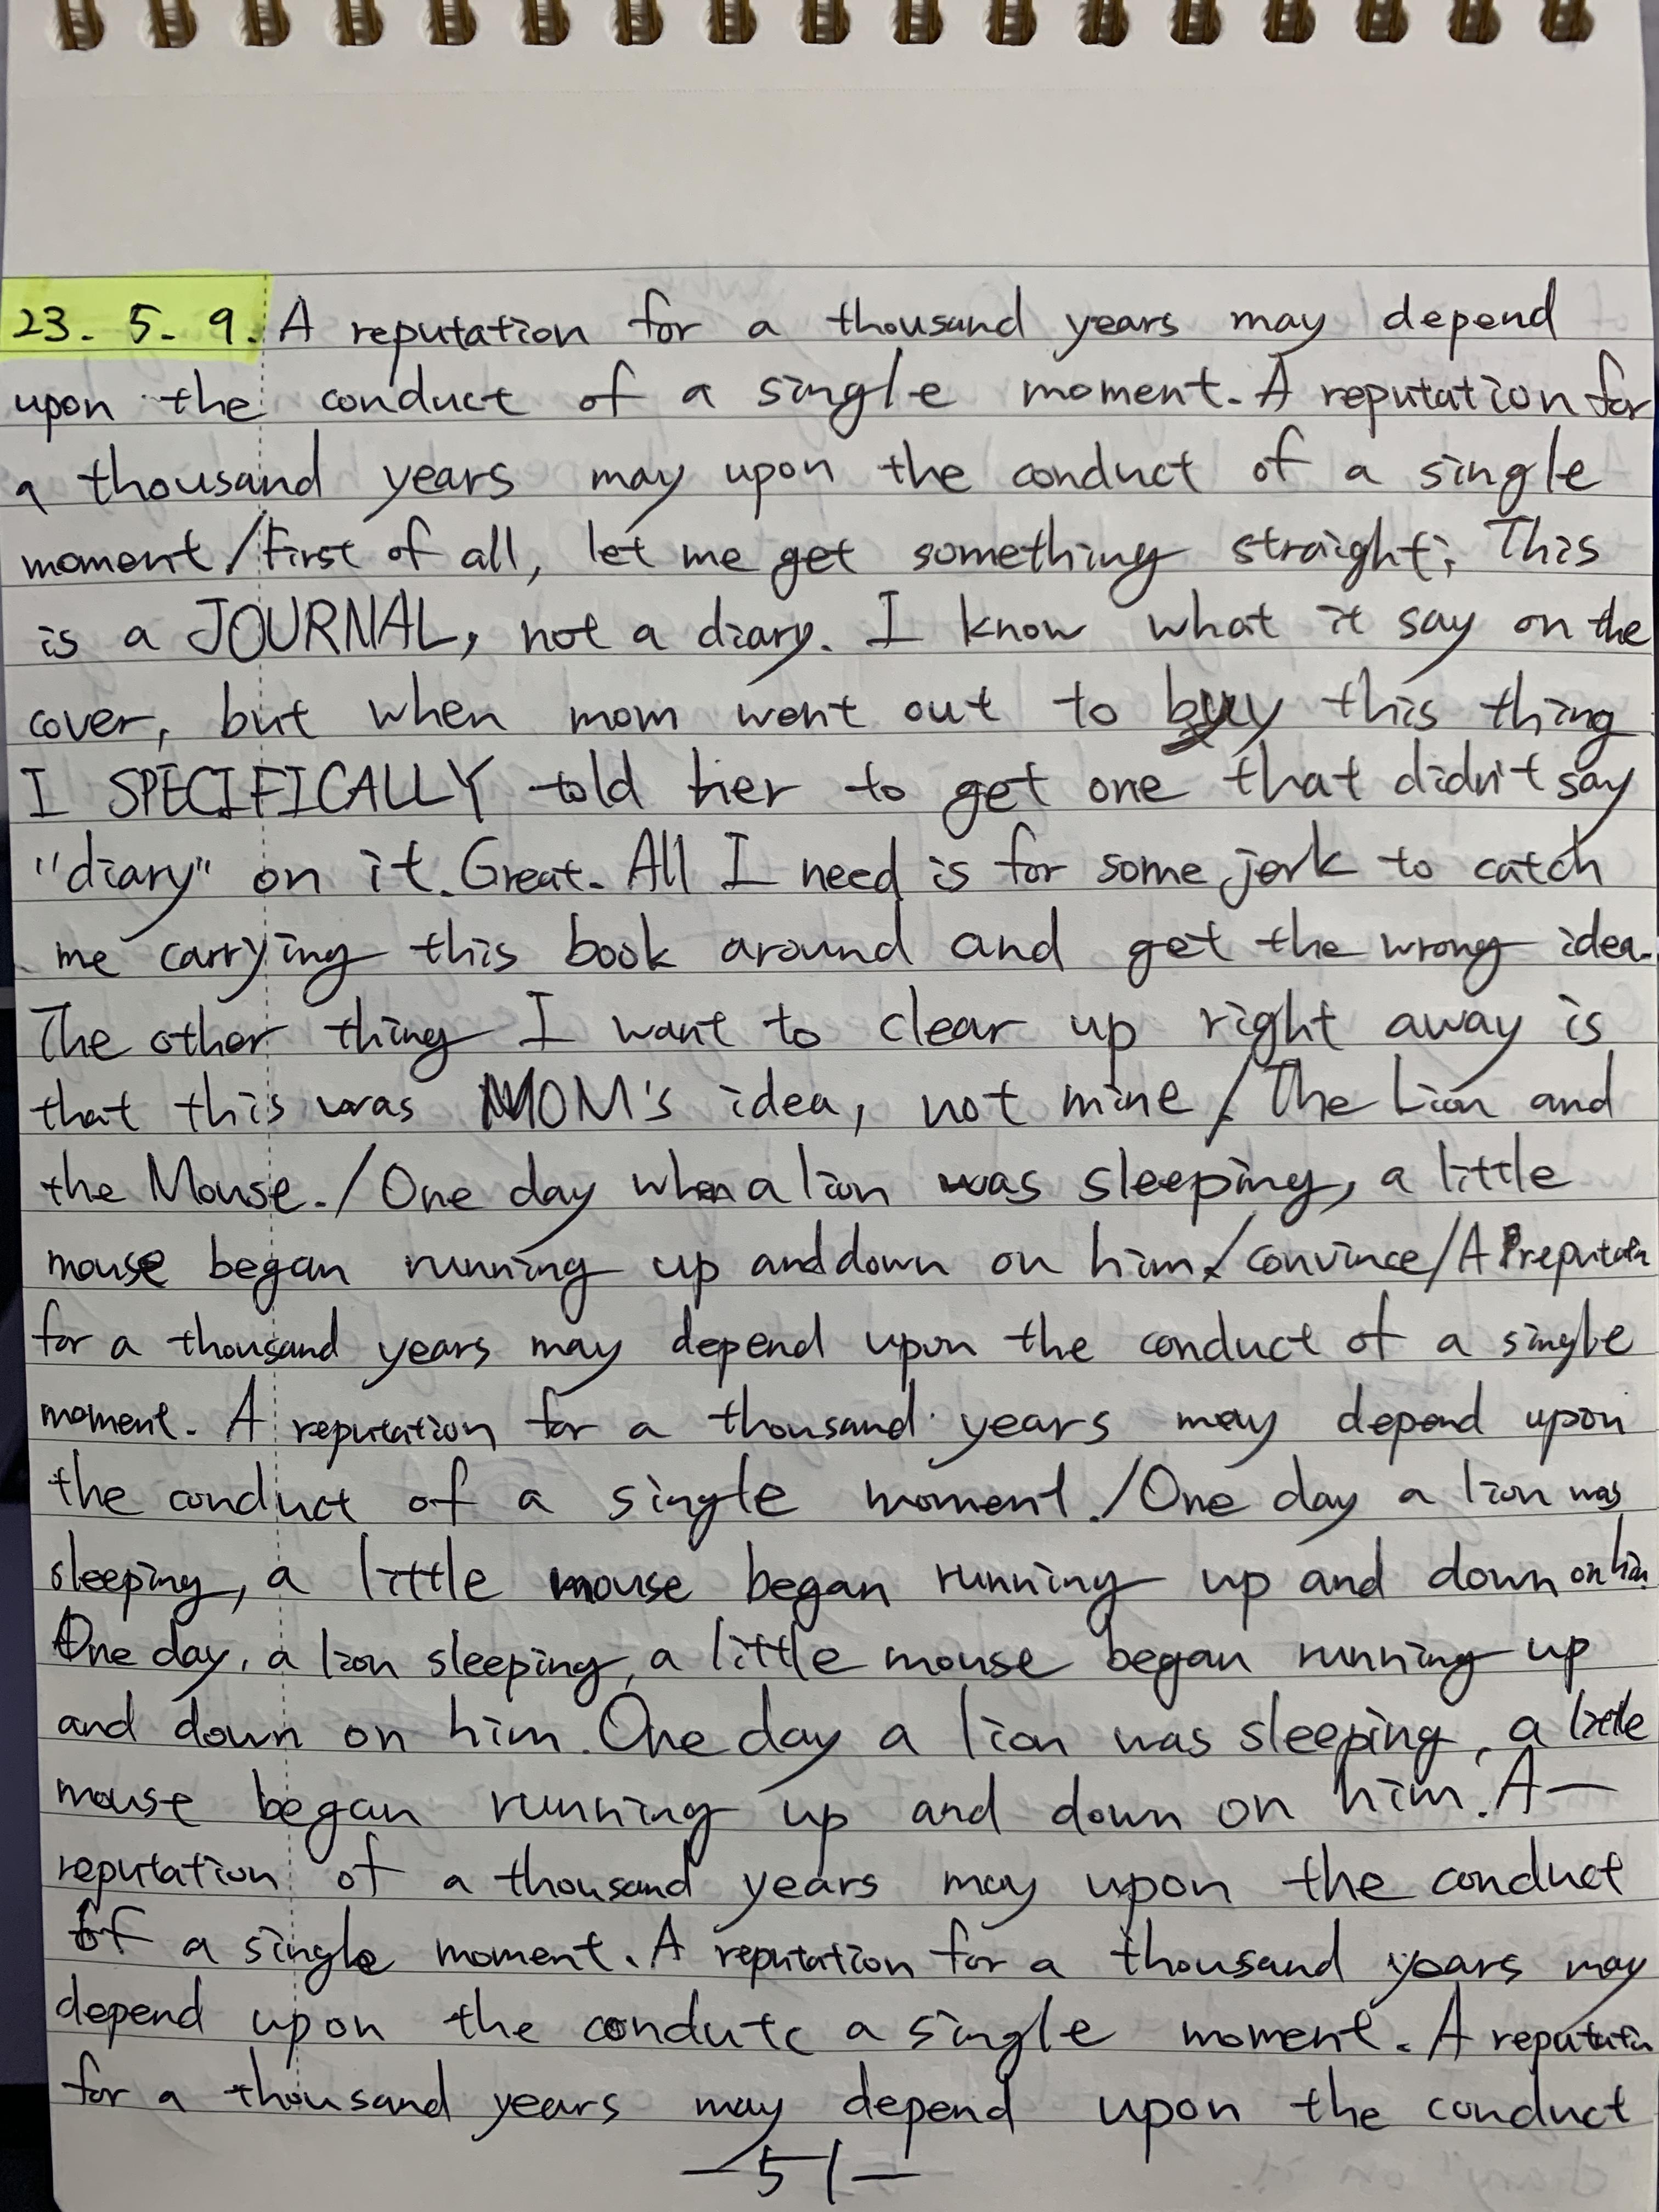 23. 5. 9. A reputation for a thousand years may depend
upon the conduct of a single moment. A reputation for
a thousand years may upon the conduct of a single
moment./First of all, let me get something straight; This
is a JOURNAL, not a diary. I know what it say on the
cover, but when mom went out to buy this thing
I SPECIFICALLY told her to get one that didn't say
"diary" on it. Great. All I need is for some jerk to catch
me carrying this book around and get the wrong idea.
The other thing I want to clear up right away is
that this was MOM's idea, not mine./The Lion and
the Mouse./One day when a lion was sleeping, a little
mouse began running up and down on him./convince/A reputation
for a thousand years may depend upon the conduct of a single
moment. A reputation for a thousand years may depend upon
the conduct of a single moment./One day a lion was
sleeping, a little mouse began running up and down on him.
One day, a lion sleeping, a little mouse began running up
and down on him. One day a lion was sleeping, a little
mouse began running up and down on him. A—
reputation of a thousand years may upon the conduct
of a single moment. A reputation for a thousand years may
depend upon the condutc a single moment. A reputation
for a thousand years may depend upon the conduct
—51—